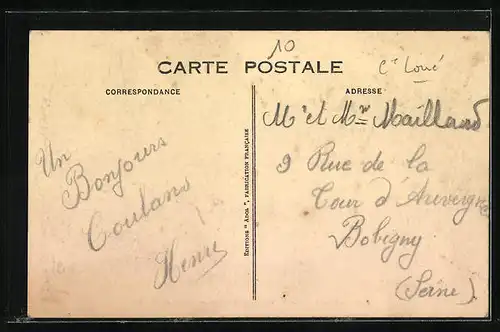 10
Cⁿ Loué
CARTE POSTALE
CORRESPONDANCE
ADRESSE
Un
Bonjours
Coulans
Henri
EDITIONS "ADOL", FABRICATION FRANÇAISE
Mʳ et Mᵐᵉ Maillard
9 Rue de la
Tour d'Auvergne
Bobigny
(Seine)